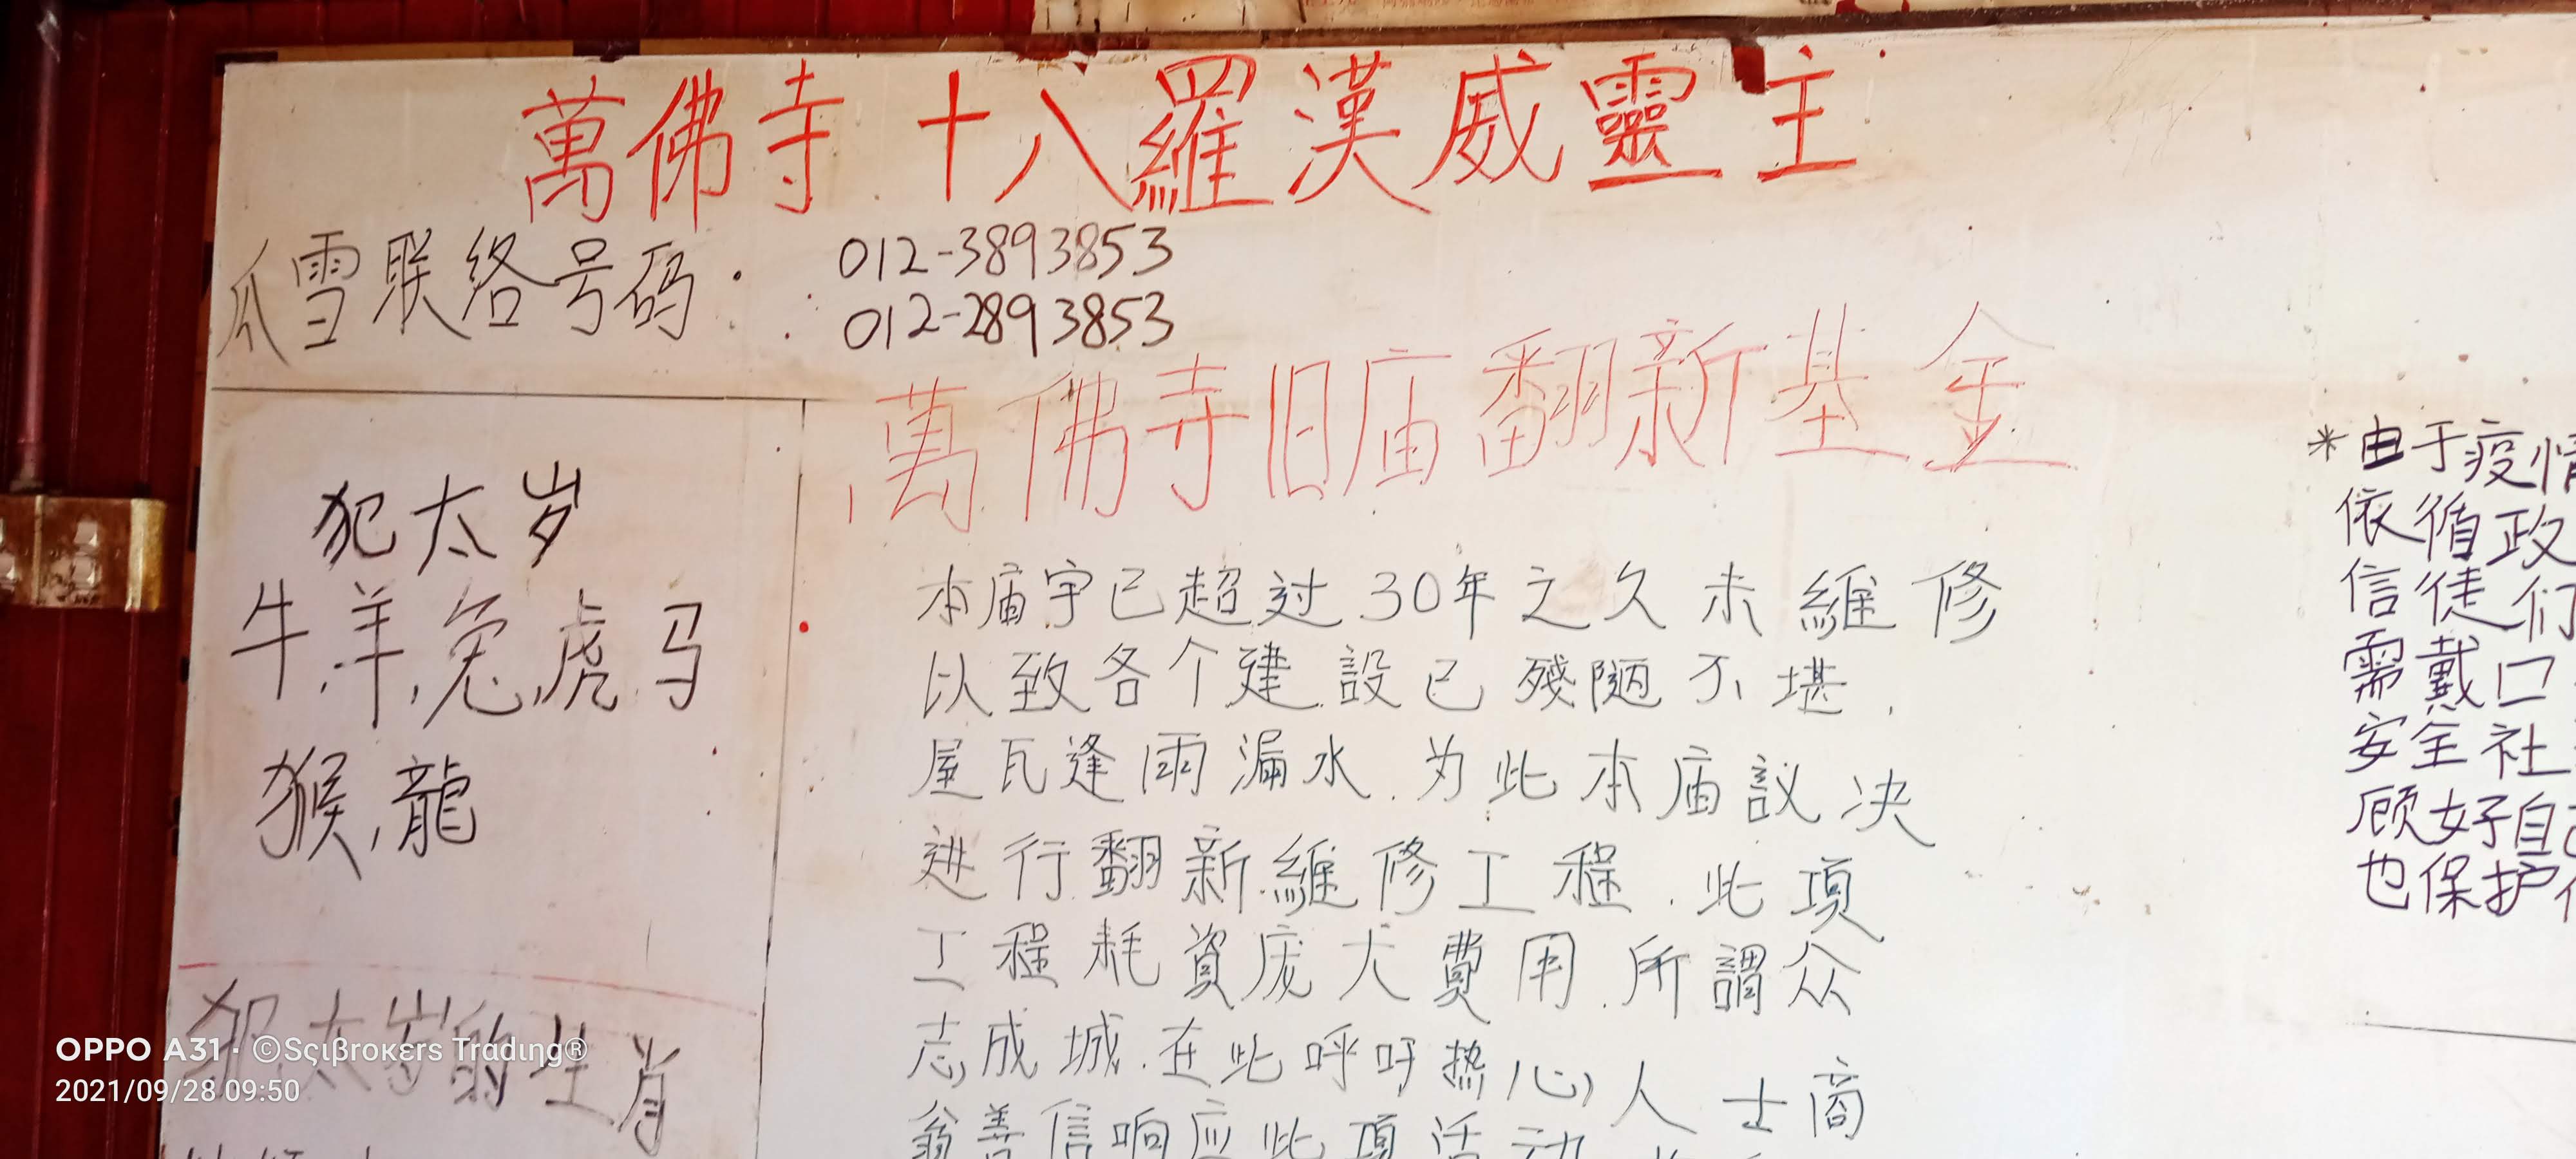 萬佛寺 十八羅漢威靈主
瓜雪联络号码: 012-3893853
012-2893853
萬佛寺旧庙翻新基金
犯太岁
牛,羊,兔,虎,马
猴,龍
犯太岁的生肖
本庙宇已超过30年之久未維修
以致各个建設已殘陋不堪,
屋瓦逢雨漏水.为此本庙議决
进行翻新維修工程.此項
工程耗資庞大費用.所謂众
志成城.在此呼吁热心人士商
翁善信响应此項活动
*由于疫情
依循政
信徒们
需戴口
安全社
顾好自己
也保护
OPPO A31 · ©Sςιβrokєrs Trαdιηg®
2021/09/28 09:50